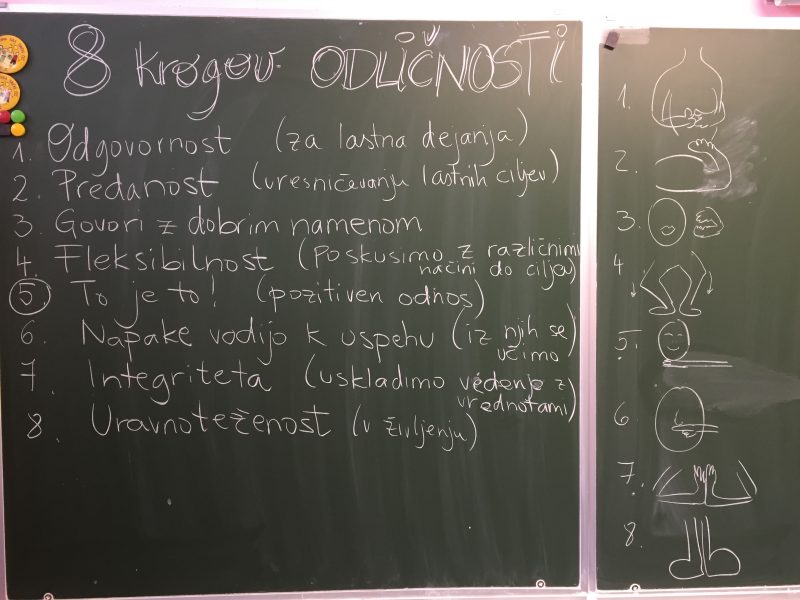 8 krogov ODLIČNOSTI
1. Odgovornost (za lastna dejanja)
2. Predanost (uresničevanju lastnih ciljev)
3. Govori z dobrim namenom
4. Fleksibilnost (Poskusimo z različnimi
načini do cilja)
5. To je to! (pozitiven odnos)
6. Napake vodijo k uspehu (iz njih se
učimo)
7. Integriteta (uskladimo vedenje z
vrednotami)
8. Uravnoteženost (v življenju)
1.
2.
3.
4
5.
6
7.
8.